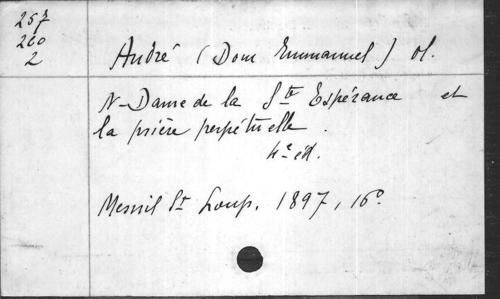 257
260
2
André (Dom Emmanuel) ol.
N-Dame de la Ste Espérance et
la prière perpétuelle.
4e éd.
Mesnil St Loup, 1897, 16o.